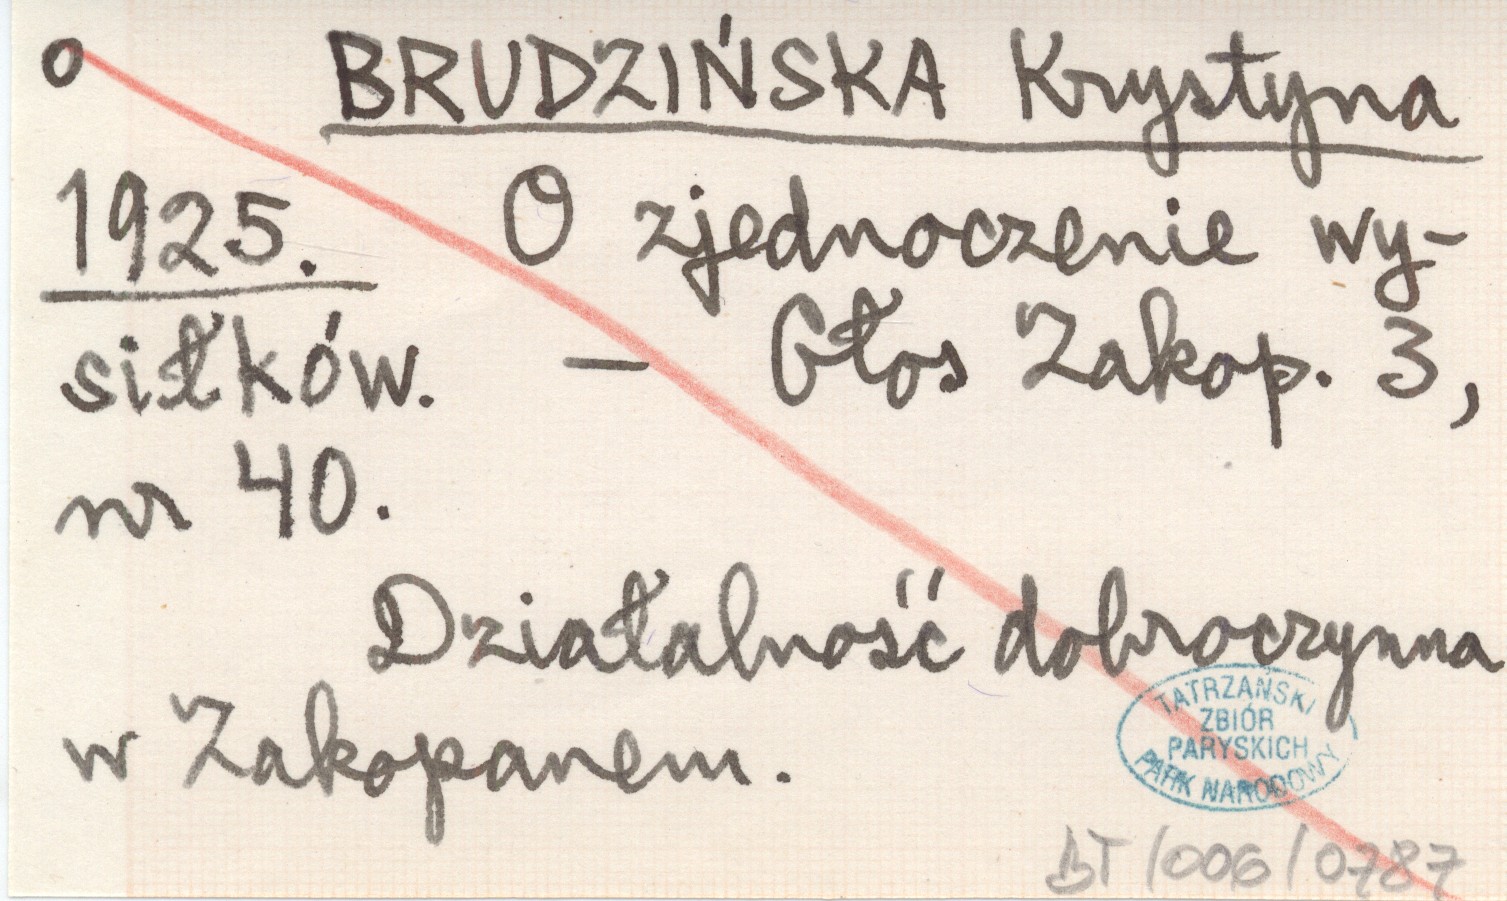 o BRUDZIŃSKA Krystyna
1925. O zjednoczenie wy-
siłków. – Głos Zakop. 3,
nr 40.
Działalność dobroczynna
w Zakopanem.
TATRZAŃSKI
ZBIÓR
PARYSKICH
PARK NARODOWY
BT/006/0787